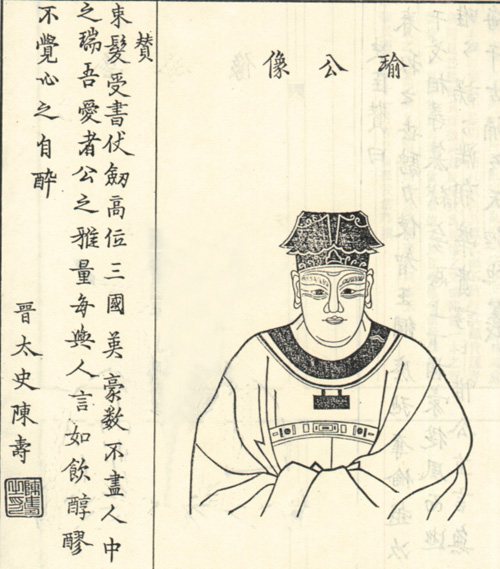 瑜公像
賛
束髮受書仗劒高位三國英豪數不盡人中
之瑞吾愛者公之雅量每與人言如飲醇醪
不覺心之自醉
晉太史陳壽